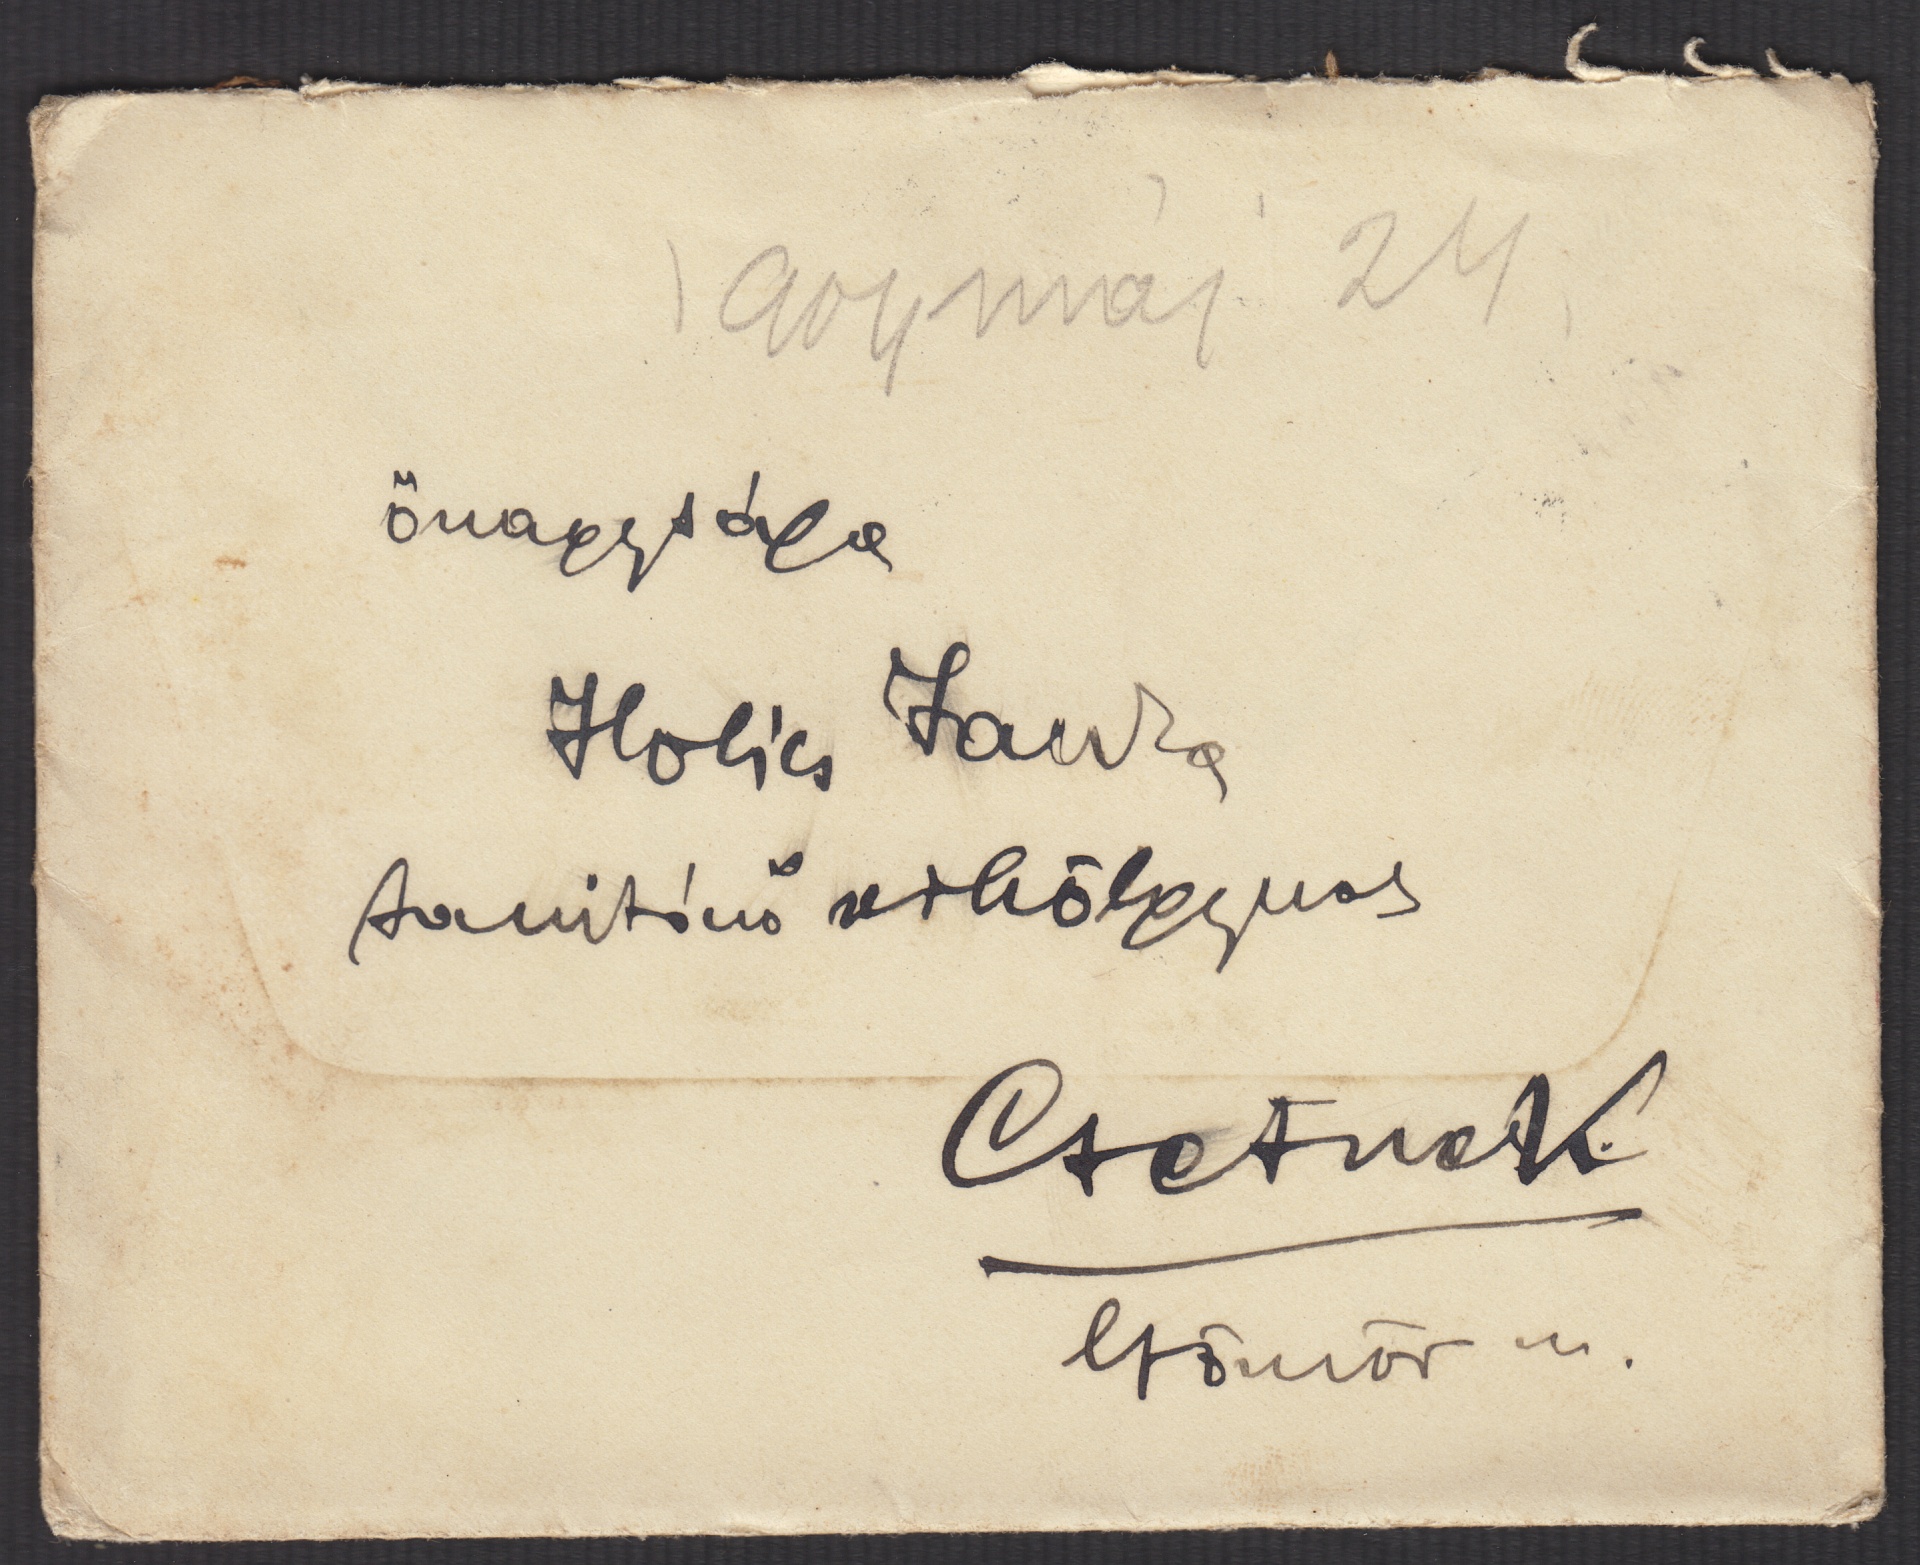 1904 máj 24
önagysága
Holics Janka
tanitónö urhölgynek
Csetnek
Gömör m.